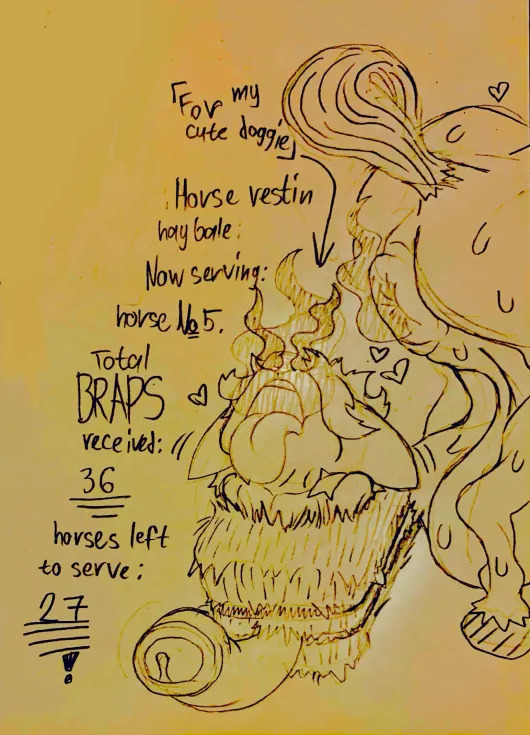 「For my
cute doggie」
Horse restin
hay bale:
Now serving:
horse №5.
Total
BRAPS
received:
36
horses left
to serve:
27
!